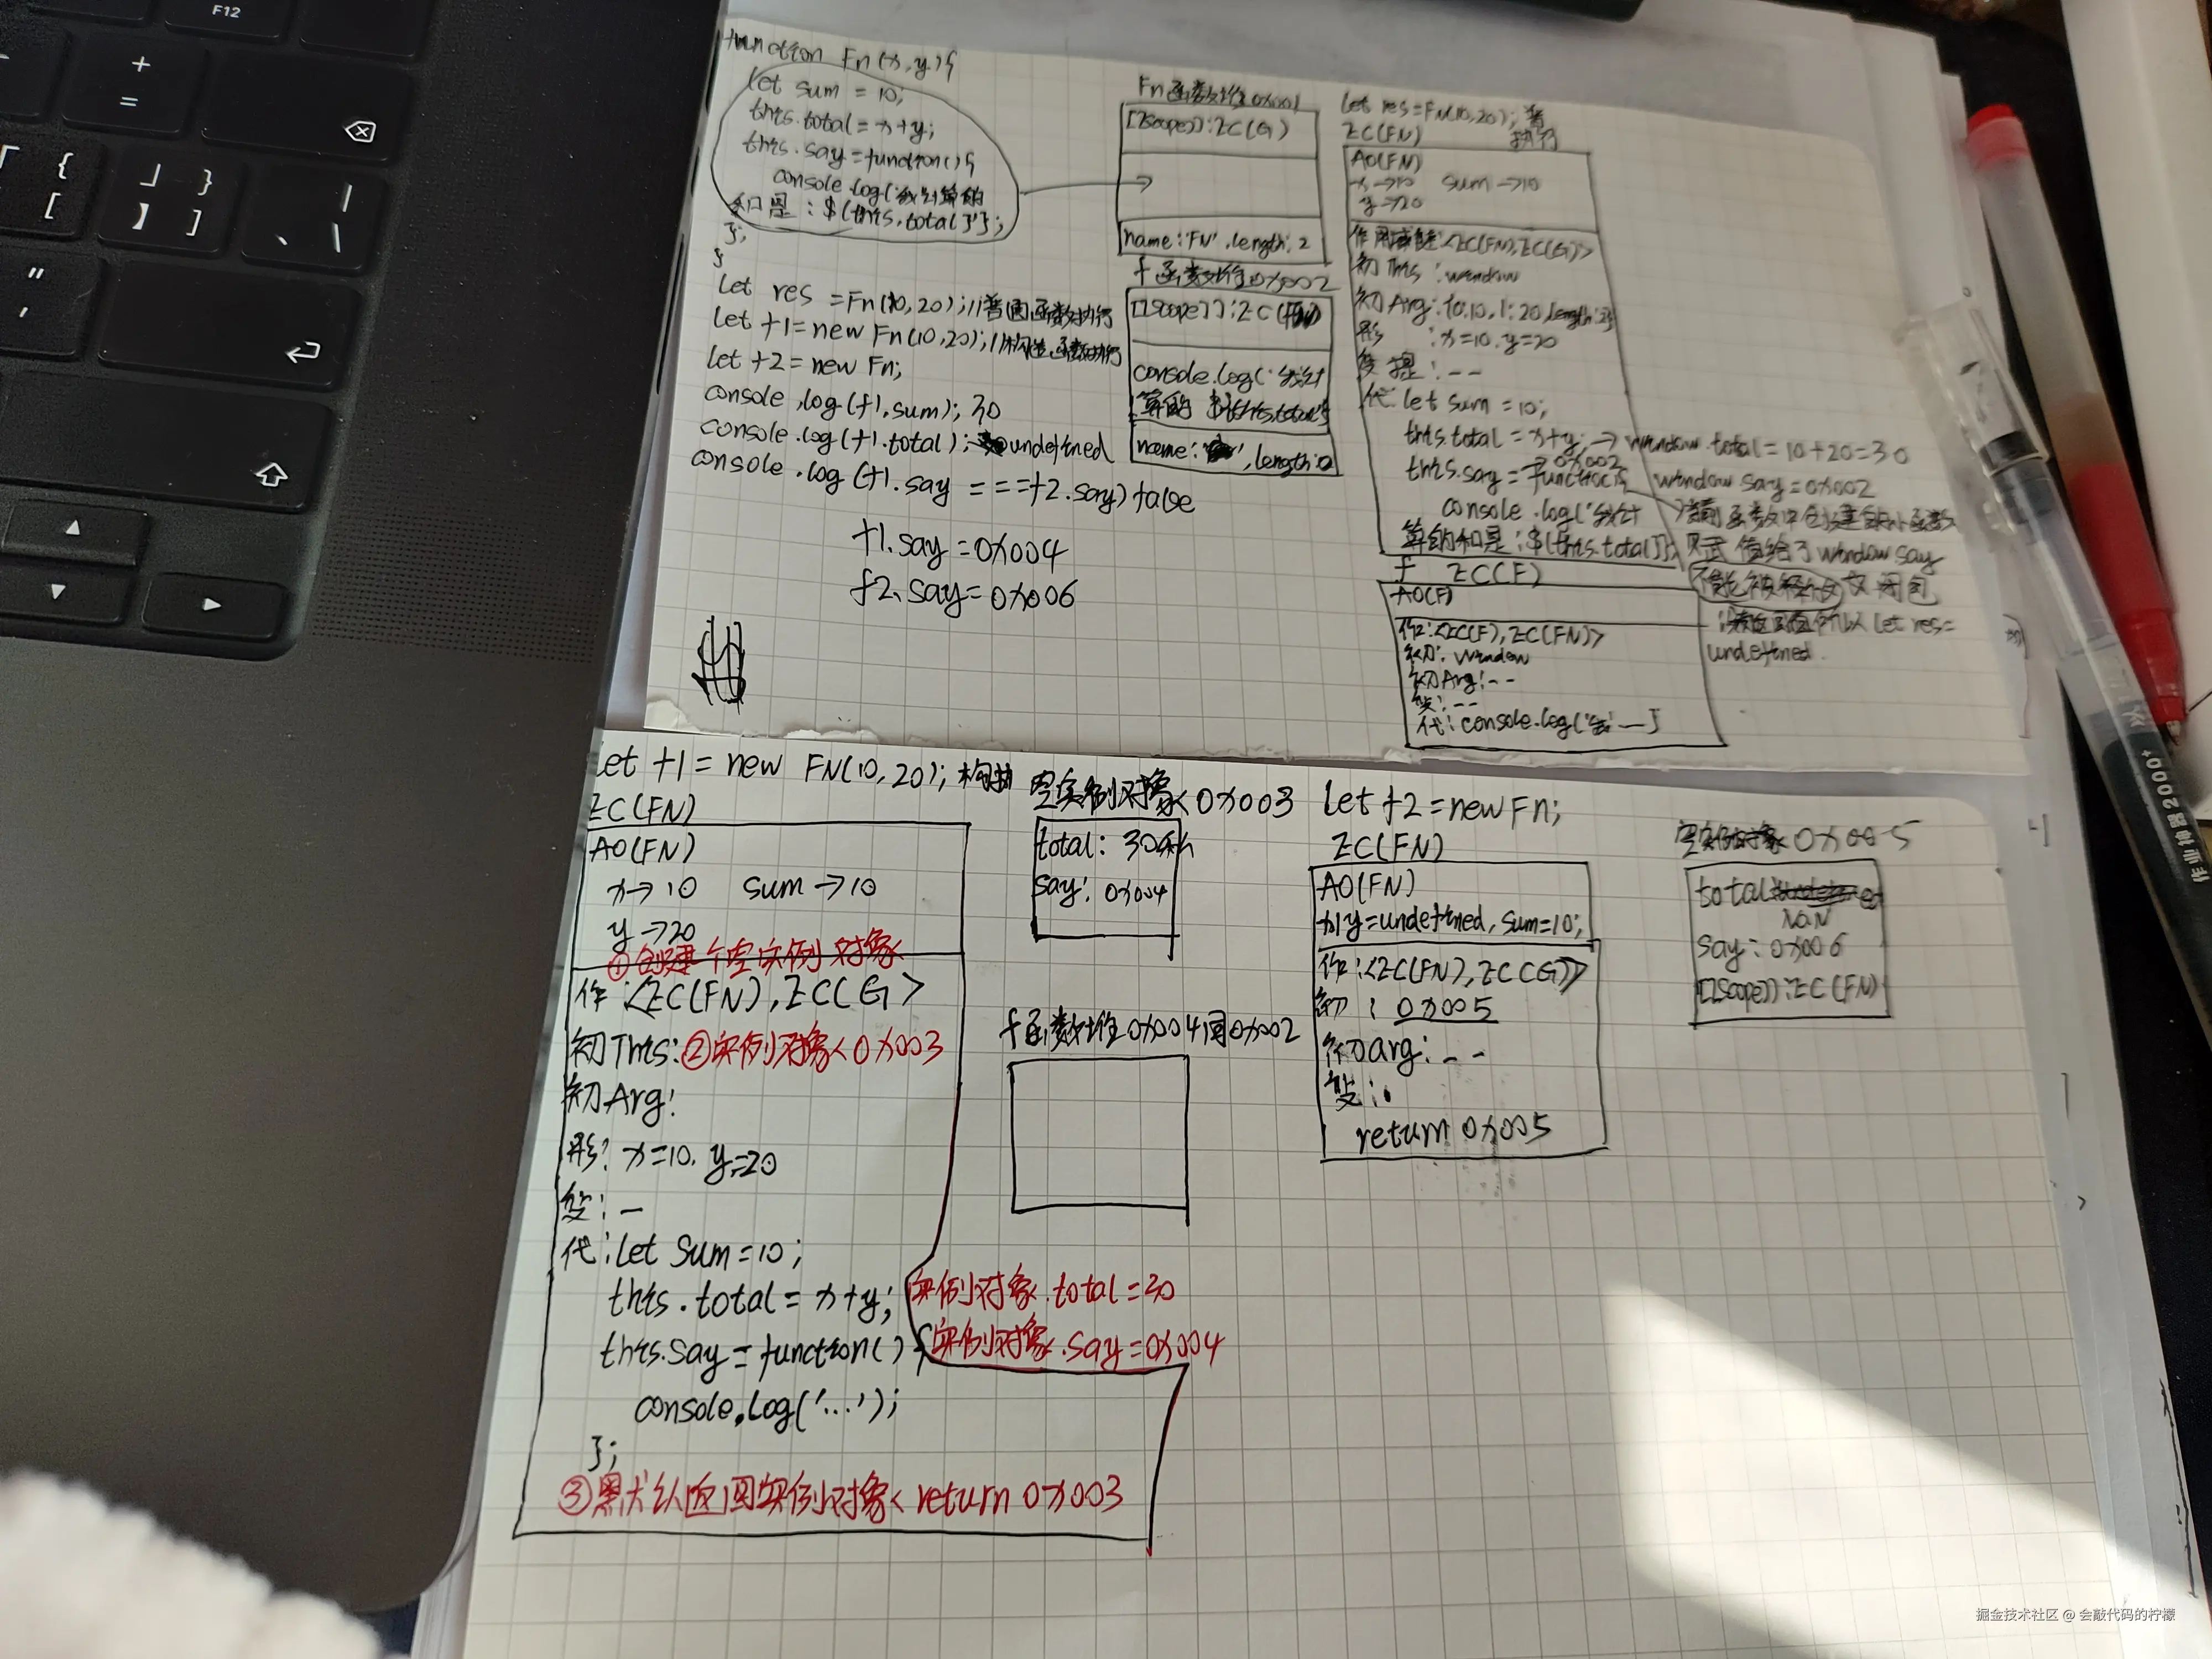 F12
+
=
{
[
」 }
】 ]
|
、 \
"
,
function Fn(x,y){
let sum = 10;
this.total=x+y;
this.say=function(){
console.log(我计算的
和是:${this.total}'};
};
}
let res =Fn(10,20);//普通函数执行
let f1=new Fn(10,20);//构造函数执行
let f2=new Fn;
console.log(f1.sum);30
console.log(f1.total);undefined
console.log(f1.say===f2.say)false
f1.say=0x004
f2.say=0x006
Fn函数堆0x001
[[Scope]]:EC(G)
name:'FN',length:2
f函数堆0x002
[[Scope]]:EC(FN)
console.log('我计
算的 ${this.total}
name:'',length:0
let res=Fn(10,20);普
执行
EC(FN)
AO(FN)
x→10 sum→10
y→20
作用域链:<EC(FN),EC(G)>
初This:window
初Arg:{0:10,1:20,length:2}
形:x=10,y=20
变提:--
代:let sum=10;
this.total=x+y;→window.total=10+20=30
0x002
this.say=function(){ window say=0x002
console.log('我计
算的和是:${this.total}};
函数中创建的小函数
赋值给了window say
不能被释放 闭包
所以let res=
undefined.
f EC(F)
AO(F)
作:<EC(F),EC(FN)>
初:window
初Arg:--
变:--
代:console.log('我'—}
let f1=new FN(10,20);构执
EC(FN)
AO(FN)
x→10 sum→10
y→20
①创建个空实例对象
作:<EC(FN),EC(G>
初This:②实例对象<0x003
初Arg:
形:x=10,y=20
变:—
代:let sum=10;
this.total=x+y; 实例对象.total=30
this.say=function(){ 实例对象.say=0x004
console.log('...');
};
③默认返回实例对象<return 0x003
空实例对象<0x003
total:30
say:0x004
f函数堆0x004同0x002
let f2=new Fn;
EC(FN)
AO(FN)
x,y=undefined,sum=10;
作:<EC(FN),EC(G)>
初:0x005
初arg:--
变:
return 0x005
空实例对象0x005
total
NaN
say:0x006
[[Scope]]:EC(FN)
2000+
掘金技术社区 @ 会敲代码的柠檬